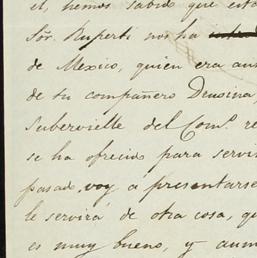 él, hemos sabido que esta
Sór. Ruperti nos ha
de Mexico, quien era
de tu compañero Drusina,
Subervielle del Com.º re
se ha ofrecido para servi
pasado, voy a presentarse
le servirá de otra cosa, qu
es muy bueno, y aum